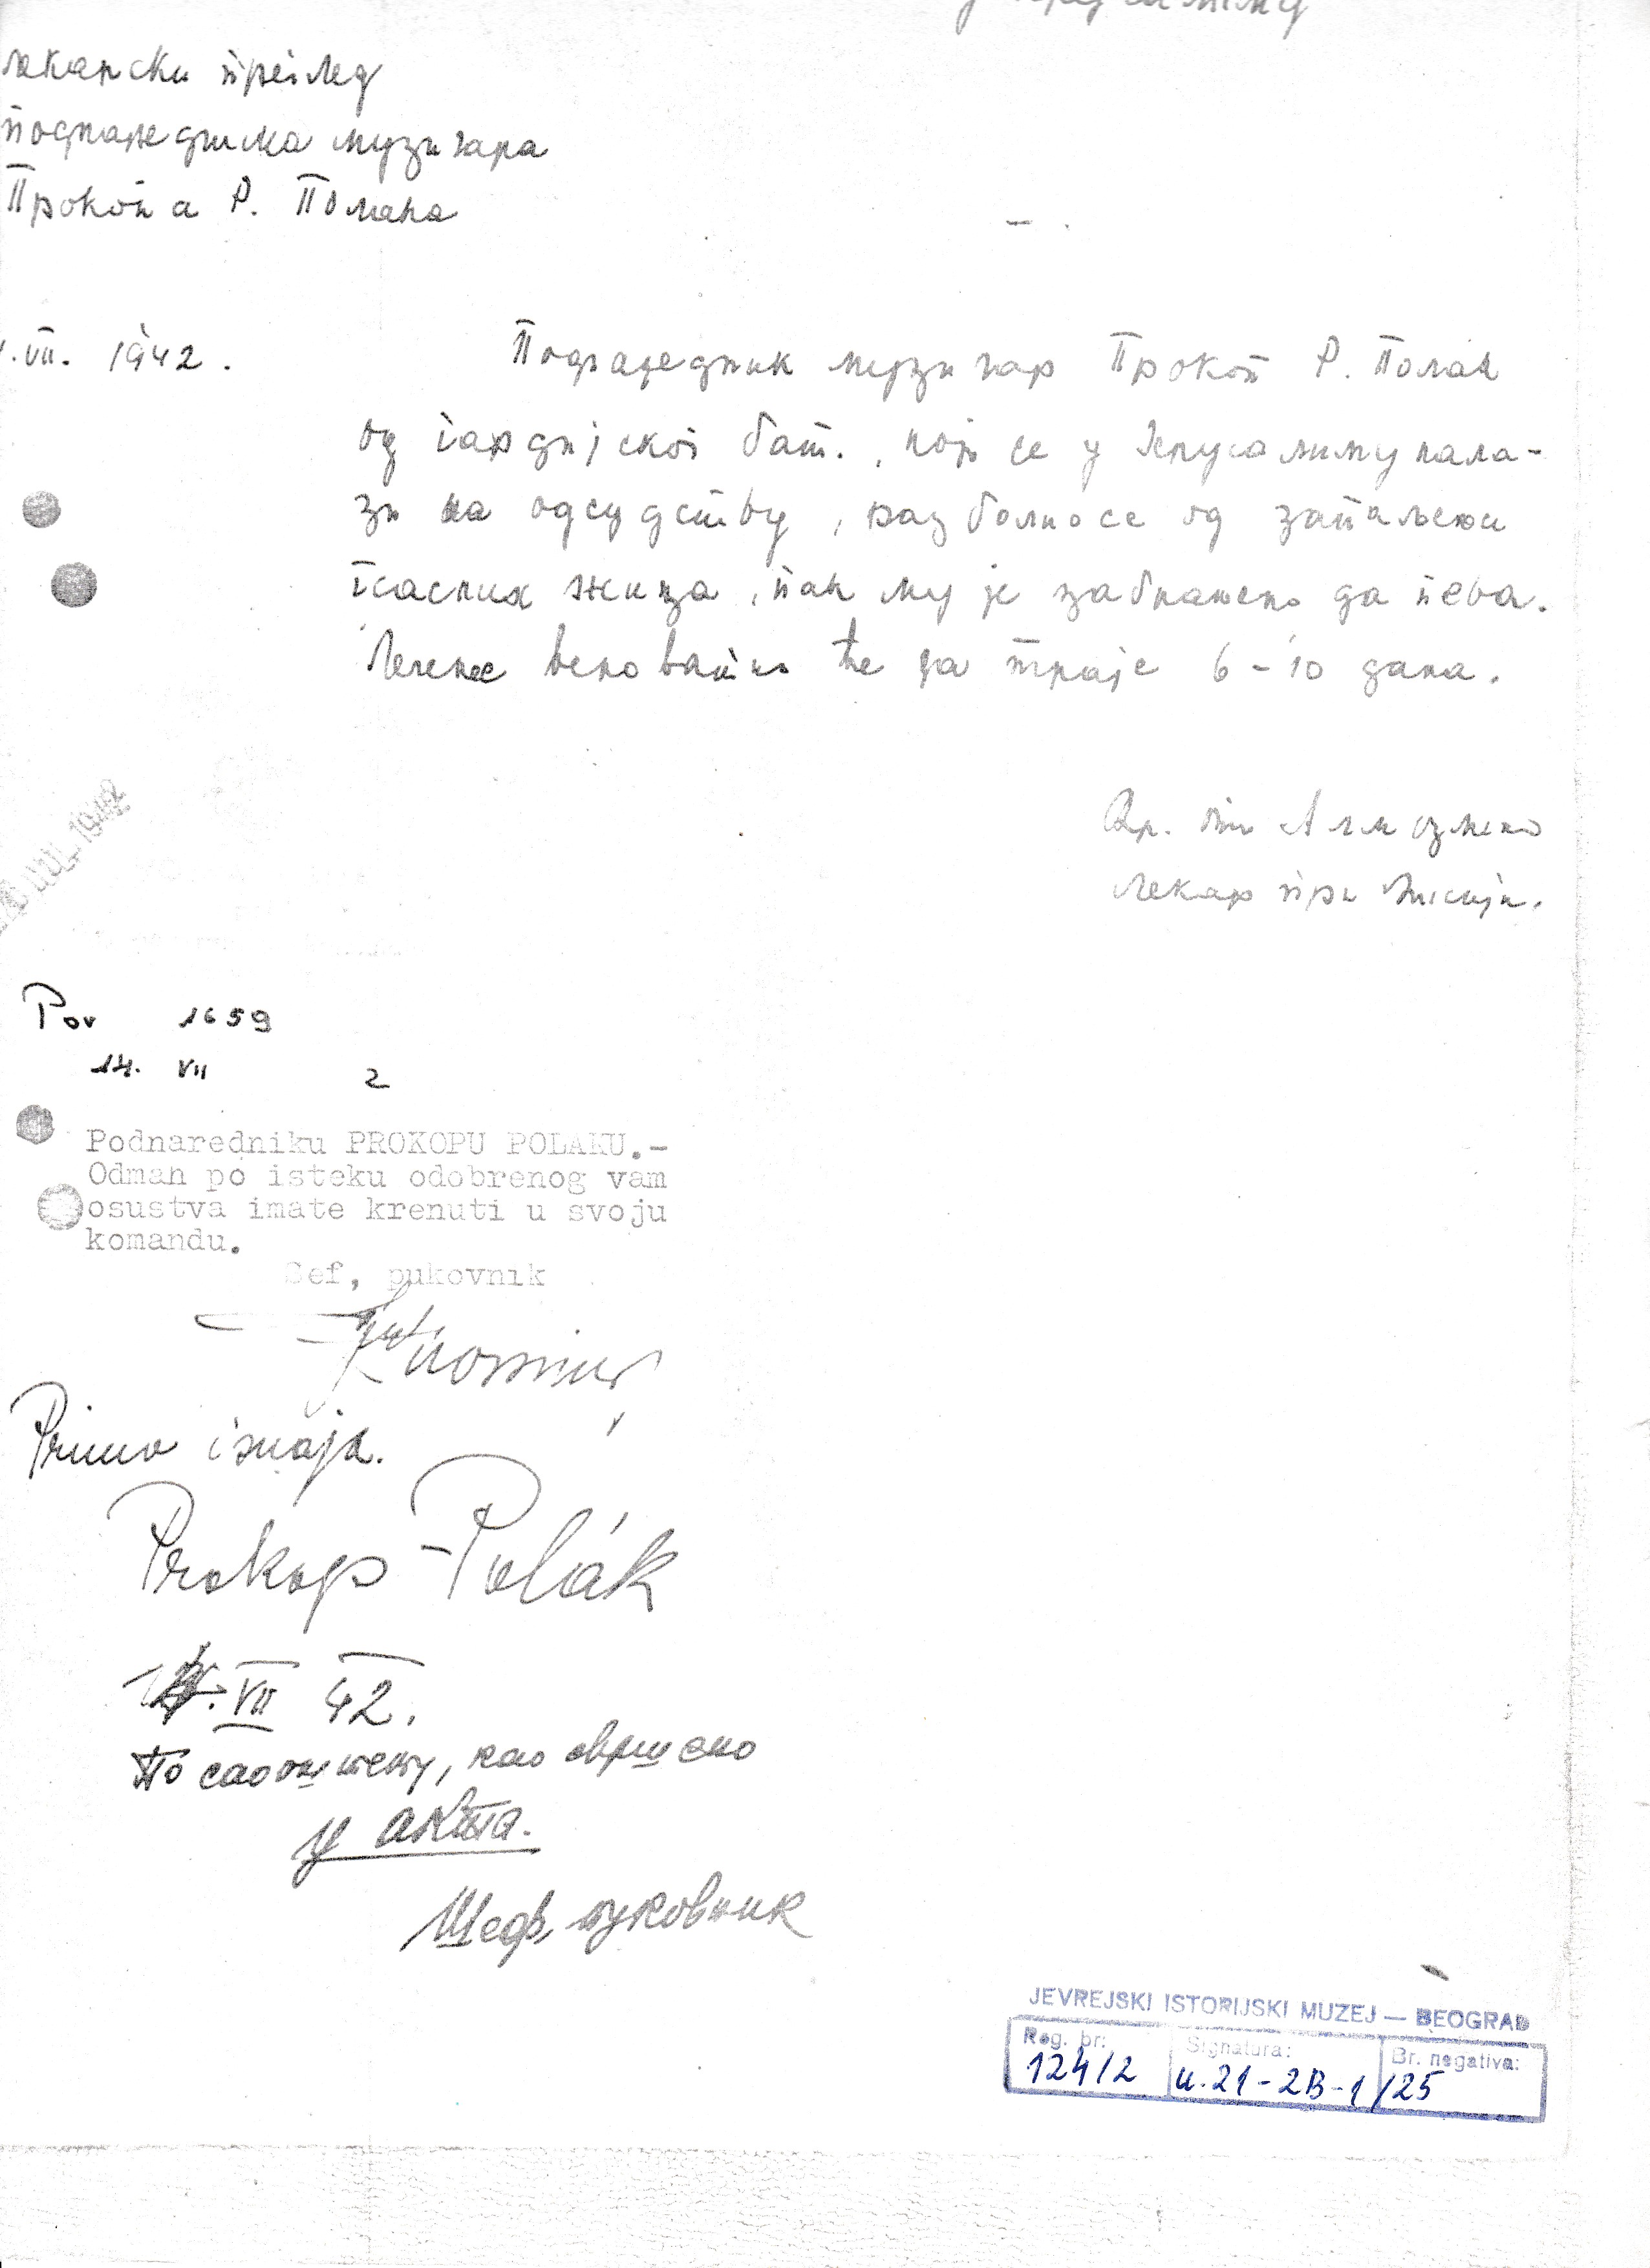 лекарски преглед
поднаредника музичара
Прокопа Р. Полака
VII. 1942.
Поднаредник музичар Прокоп Р. Полак
од гардијског бат., који се у Јерусалиму нала-
зи на одсудству, разболио се од запаљења
гласних жица, пак му је забрањено да пева.
Лечење вероватно ће да траје 6-10 дана.
лекар при Мисији.
VII. 1942
Pov 1659
14. VII 2
Podnaredniku PROKOPU POLAKU.-
Odmah po isteku odobrenog vam
osustva imate krenuti u svoju
komandu.
Šef, pukovnik
Primo i znaja.
Prokop Polák
VII 42.
По саопштењу, као свршено
у акта.
Шеф, пуковник
JEVREJSKI ISTORIJSKI MUZEJ — BEOGRAD
Reg. br: Signatura: Br. negativa:
124/2 и.21-2B-1/25